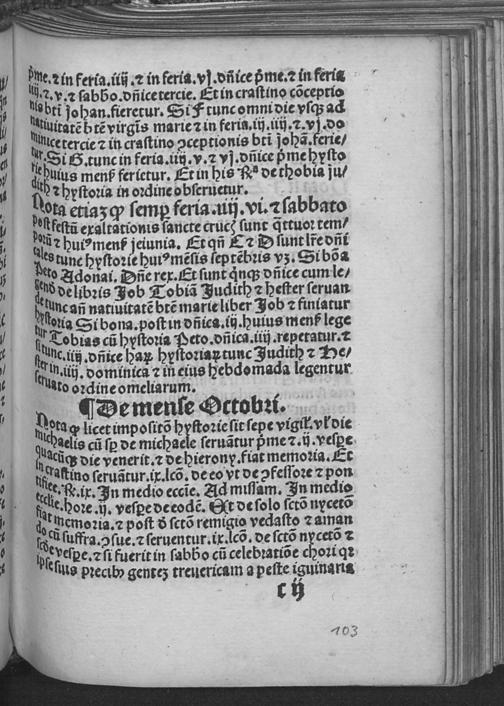 p̄me.⁊ in feria.iiij.⁊ in feria.vj.dñice p̄me.⁊ in feria
iiij.⁊.v.⁊ sabbo.dñice tercie. Et in crastino cōceptio
nis bti̅ johan.fieretur. Si F tunc omni die vsqꝫ ad
natiuitatē bt̄e virgīs marie ⁊ in feria.iij.iiij.⁊ vj.do
minice tercie ⁊ in crastino ꝯceptionis bti̅ johā.ferie/
tur. Si G.tunc in feria.iiij.v.⁊ vj.dñice p̄me hysto
rie huius mens̄ ferietur. Et in his R̄ᵃ de thobia ju/
dith ⁊ hystoria in ordine obseruetur.
Nota etiaꝫ ꝙ semꝑ feria.iiij.vi.⁊ sabbato
post festū exaltationis sancte cruc̄ sunt q̄ttuor tem/
porū ⁊ huiꝰ mens̄ jeiunia. Et qn̄ C ⁊ D sunt lr̄e dñi
cales tunc hystorie huiꝰ mēsis septēbris vꝫ. Si bōa
Peto Adonai. Dn̄e rex. Et sunt q̄nqꝫ dñice cum le/
gend̄ de libris Job Tobiā Judith ⁊ hester seruan
de tunc añ natiuitatē btē marie liber Job ⁊ finiatur
hystoria Si bona.post in dñica.iij.huius mens̄ lege
tur Tobias cū hystoria Peto.dñica.iiij.repetatur.⁊
si tunc.iiij.dñice haꝝ hystoriaꝝ tunc Judith ⁊ He/
ster in.iiij.dominica ⁊ in eius hebdomada legentur
seruato ordine omeliarum.
¶ De mense Octobri.
Nota ꝙ licet impositō hystorie sit sepe vigil̄.vl̓ die
michaelis cū sp̄ de michaele seruātur p̄me ⁊.ij.vesꝑe
quacūqꝫ die venerit.⁊ de hierony.fiat memoria. Et
in crastino seruātur.ix.lcō̄.de eo vt de ꝯfessore ⁊ pon
tifice.R̄.ix. In medio eccīe. Ad missam. In medio
ecclīe.hore.ij. vesꝑe de eodē. Et de solo sctō nycetō
fiat memoria.⁊ post đ sctō remigio vedasto ⁊ aman
do cū suffra.ꝯsue.⁊ seruentur.ix.lcō̄. de sctō nycetō ⁊
scd̄e vesꝑe.⁊ si fuerit in sabbo cū celebratiōe chori qꝛ
ipse suis precibꝫ genteꝫ treuericam a peste iguinaria
c ij
103